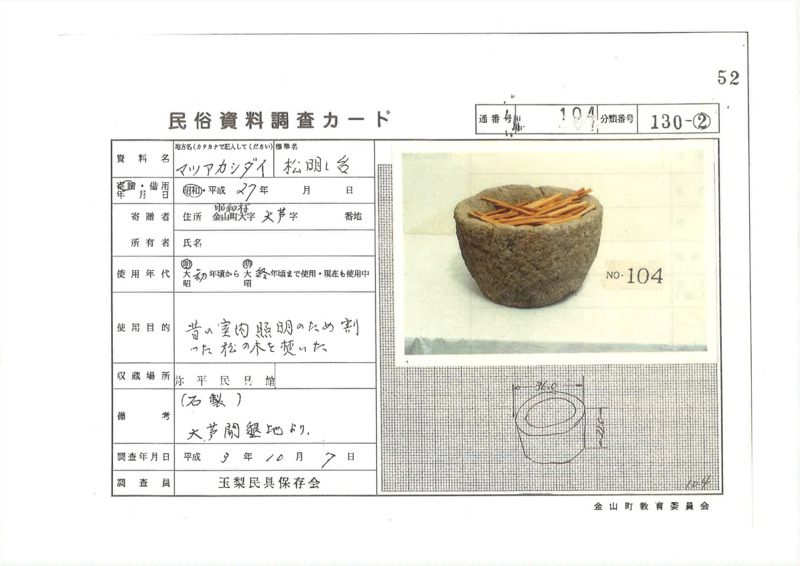 52
民俗資料調査カード
通番号 104 分類番号 130-②
資料名
地方名(カタカナで記入してください) 標準名
マツアカシダイ 松明し台
寄贈・借用年月日 昭和・平成 27年 月 日
寄贈者 住所 昭和村 金山町大字 大芦 字 番地
所有者 氏名
使用年代 明大昭 初 年頃から 明大昭 終 年頃まで使用・現在も使用中
使用目的 昔の室内照明のため割
った松の木を焚いた
収蔵場所 弥平民具館
備考 (石製)
大芦開墾地より.
調査年月日 平成 9年 10月 7日
調査員 玉梨民具保存会
NO. 104
36.0
104
金山町教育委員会